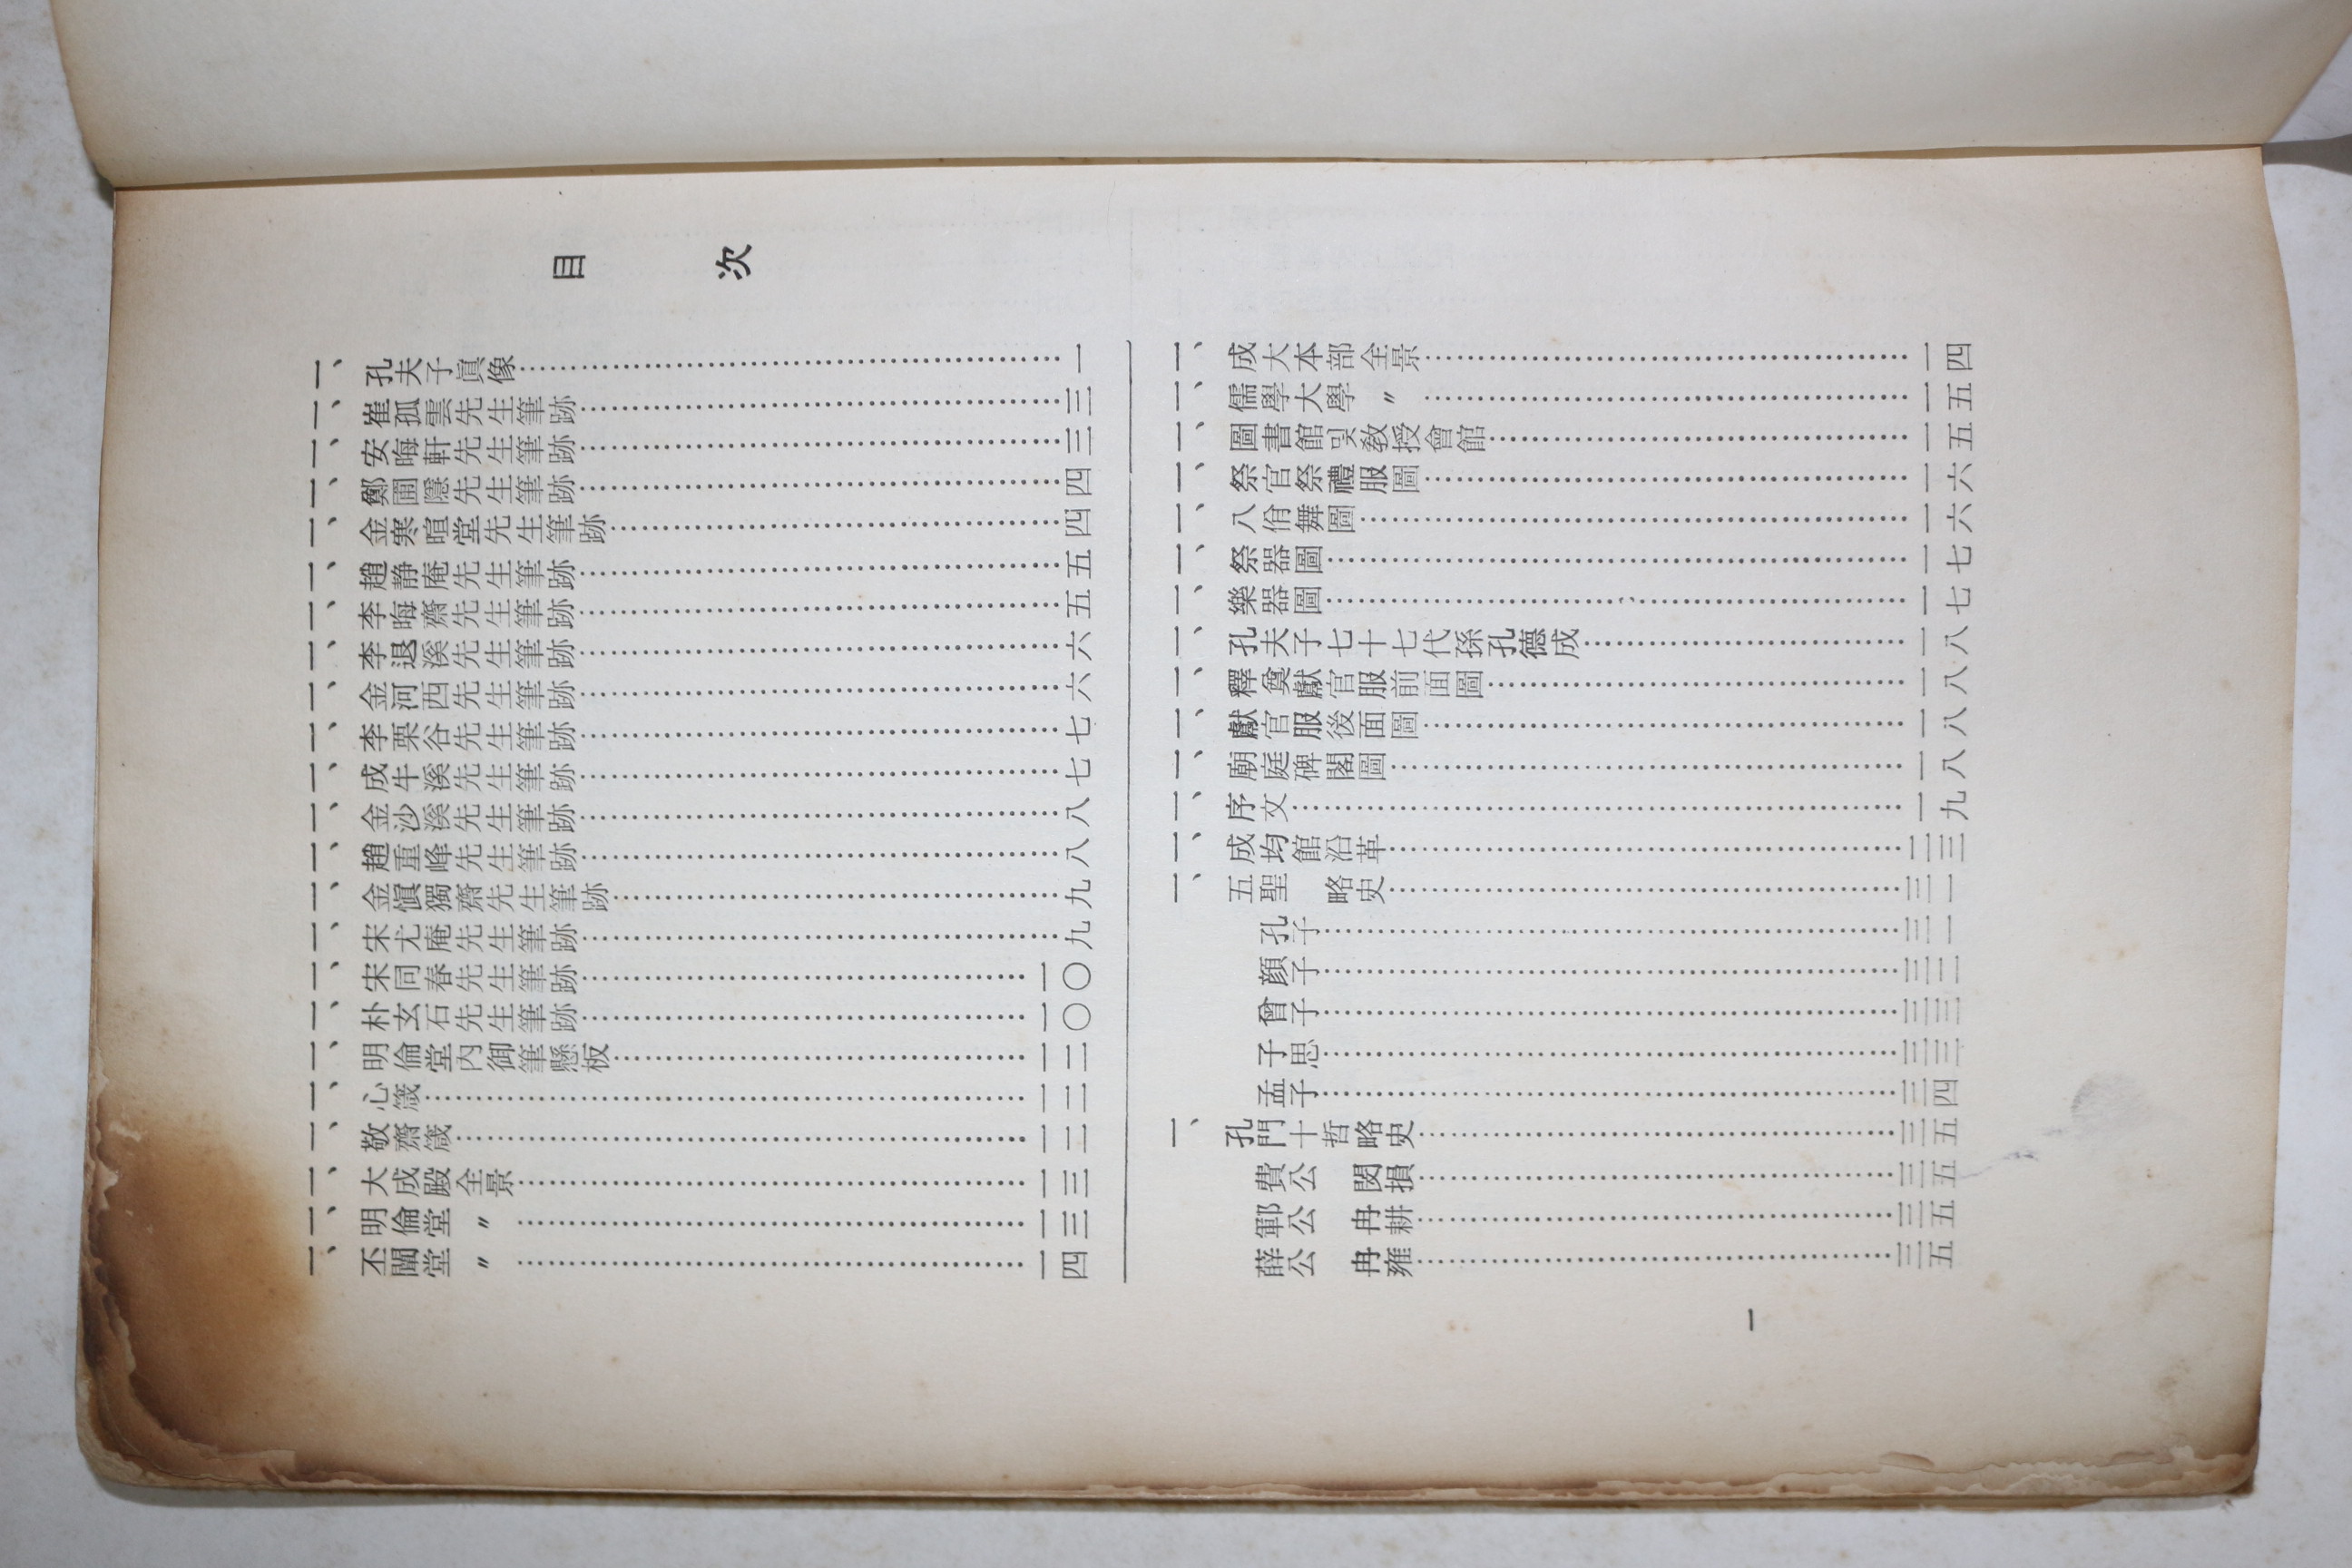 目次
一、孔夫子眞像…………一
一、崔孤雲先生筆跡…………三
一、安晦軒先生筆跡…………三
一、鄭圃隱先生筆跡…………四
一、金寒暄堂先生筆跡…………四
一、趙静庵先生筆跡…………五
一、李晦齋先生筆跡…………五
一、李退溪先生筆跡…………六
一、金河西先生筆跡…………六
一、李栗谷先生筆跡…………七
一、成牛溪先生筆跡…………七
一、金沙溪先生筆跡…………八
一、趙重峰先生筆跡…………八
一、金愼獨齋先生筆跡…………九
一、宋尤庵先生筆跡…………九
一、宋同春先生筆跡…………一〇
一、朴玄石先生筆跡…………一〇
一、明倫堂內御筆懸板…………一二
一、心箴…………一二
一、敬齋箴…………一二
一、大成殿全景…………一三
一、明倫堂 〃…………一三
一、丕闡堂 〃…………一四
一、成大本部全景…………一四
一、儒學大學 〃…………一五
一、圖書館및敎授會館…………一五
一、祭官祭禮服圖…………一六
一、八佾舞圖…………一六
一、祭器圖…………一七
一、樂器圖…………一七
一、孔夫子七十七代孫孔德成…………一八
一、釋奠獻官服前面圖…………一八
一、獻官服後面圖…………一八
一、廟庭碑閣圖…………一八
一、序文…………一九
一、成均館沿革…………二三
一、五聖 略史…………三一
孔子…………三一
顔子…………三二
曾子…………三三
子思…………三三
孟子…………三四
一、孔門十哲略史…………三五
費公 閔損…………三五
鄆公 冉耕…………三五
薛公 冉雍…………三五
一